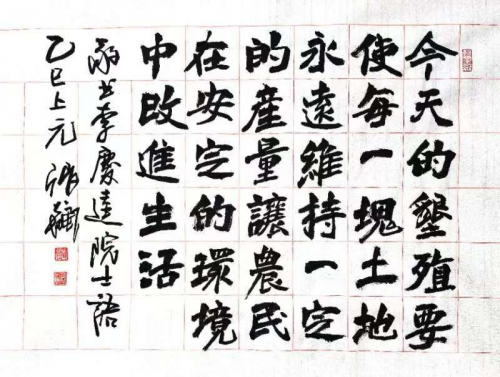 今天的墾殖要
使每一塊土地
永遠維持一定
的産量讓農民
在安定的環境
中改進生活
书李慶逵院士語
乙巳上元